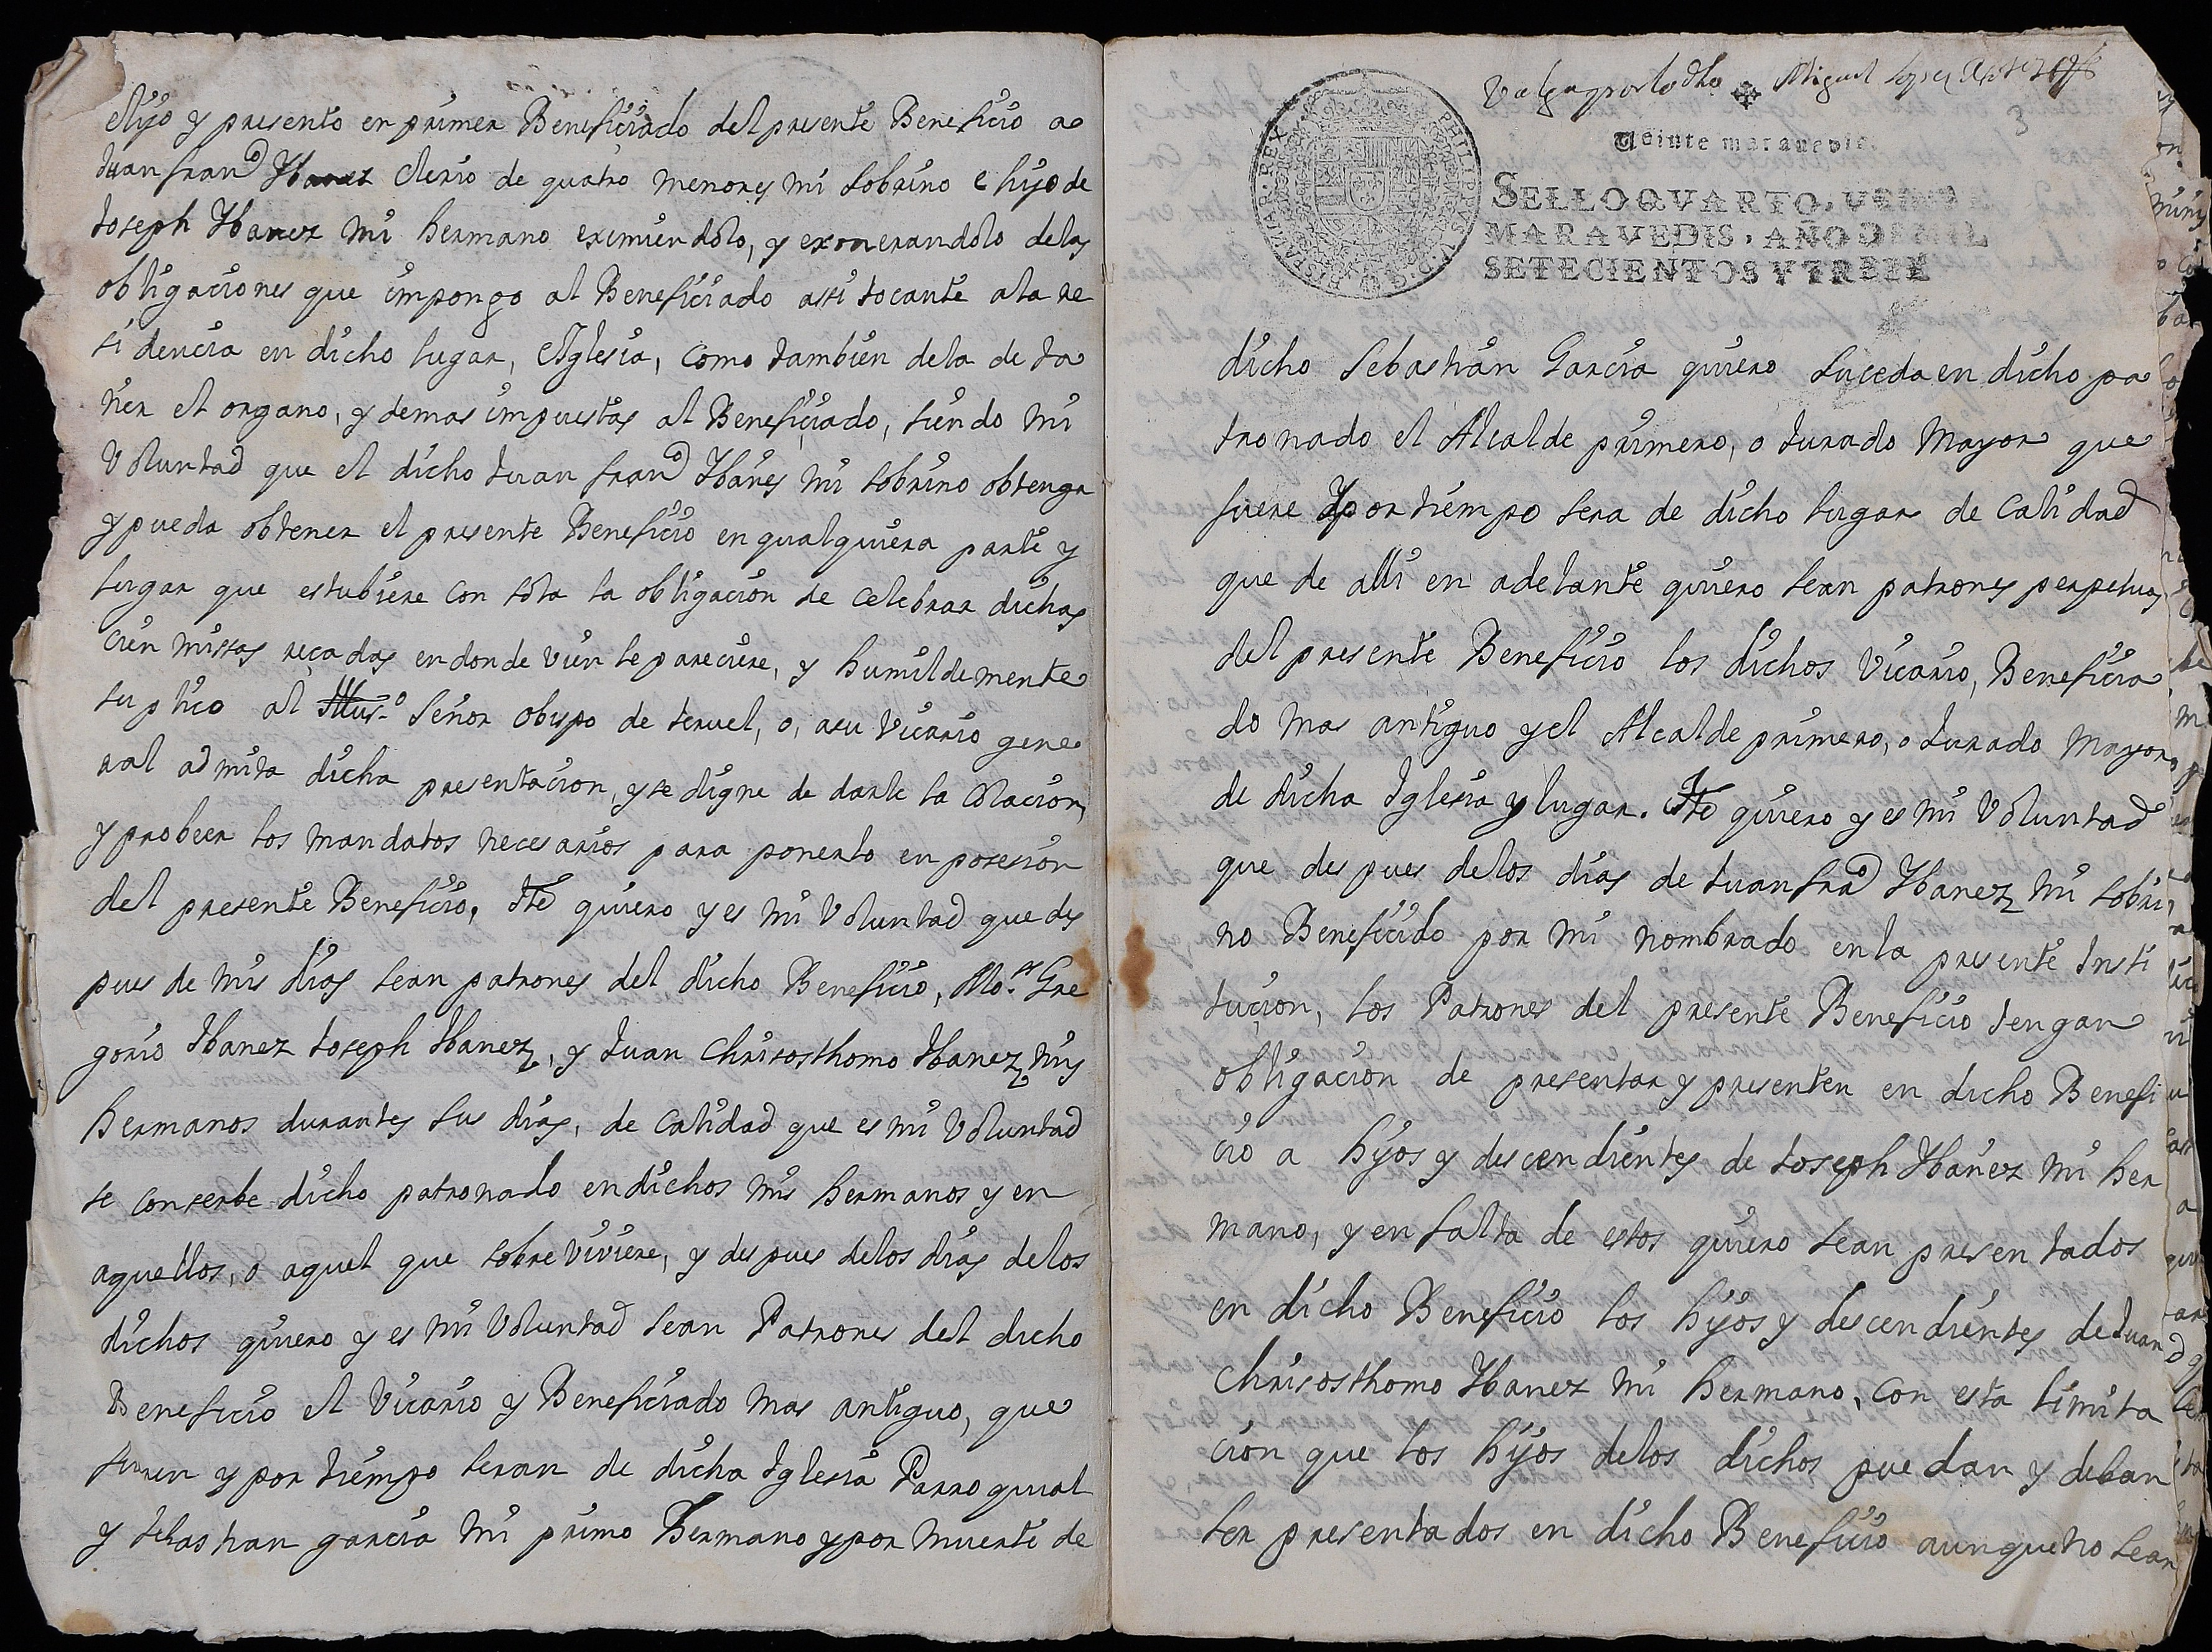 elijo y presento en primer Beneficiado del presente Beneficio a
Juan fran.co Ybanez clerigo de quatro menores mi sobrino e hijo de
Joseph Ybanez mi hermano eximiendolo, y exonerandolo delas
obligaciones que impongo al Beneficiado assi tocante ala re
sidencia en dicho lugar, e Iglesia, como tambien dela de ta
ñer el organo, y demas impuestas al Beneficiado, siendo mi
voluntad que el dicho Juan fran.co Ybañes mi sobrino obtenga
y pueda obtener el presente Beneficio en qualquiera parte y
lugar que estubiere con sola la obligacion de celebrar dichas
cien missas recadas en donde vien le pareciere, y humildemente
suplico al Illus.o Señor obispo de teruel, o, a su vicario gene
ral admita dicha presentacion, y se digne de darle la colacion,
y probeer los mandatos necesarios para ponerlo en posesion
del presente Beneficio, Ite quiero y es mi voluntad que des
pues de mis dias sean patrones del dicho Beneficio, Mo.n Gre
gorio Ybanez Joseph Ybanez, y Juan Chrisosthomo Ybanez mis
hermanos durantes sus dias, de calidad que es mi voluntad
se conserbe dicho patronado en dichos mis hermanos y en
aquellos, o aquel que sobre viviere, y despues delos dias delos
dichos quiero y es mi voluntad sean Patrones del dicho
Beneficio el vicario y Beneficiado mas antiguo, que
fueren y por tiempo seran de dicha Iglesia Parroquial
y sebastian garcia mi primo hermano y por muerte de
Valga por lo dho Miguel Lopez
3
Veinte maravedis.
PHILIPPVS V D G HISPANIAR REX
SELLO QVARTO, VEINTE
MARAVEDIS, AÑO DE MIL
SETECIENTOS Y TREIN
dicho Sebastian Garcia quiero suceda en dicho pa
tronado el Alcalde primero, o Jurado Mayor que
fuere y por tiempo sera de dicho lugar de calidad
que de alli en adelante quiero sean patrones perpetuos
del presente Beneficio los dichos vicario, Beneficia
do mas antiguo y el Alcalde primero, o Jurado Mayor
de dicha Iglesia y lugar. Ite quiero y es mi voluntad
que despues delos dias de Juan fra.co Ybanez mi sobri
no Beneficido por mi nombrado en la presente Insti
tucion, los Patrones del presente Beneficio tengan
obligacion de presentar y presenten en dicho Benefi
cio a hijos y descendientes de Joseph Ybañez mi her
mano, y en falta de estos quiero sean presentados
en dicho Beneficio los hijos y descendientes de Juan
Chrisosthomo Ybanez mi hermano, con esta limita
cion que los hijos delos dichos puedan y deban
ser presentados en dicho Beneficio aunque no sean